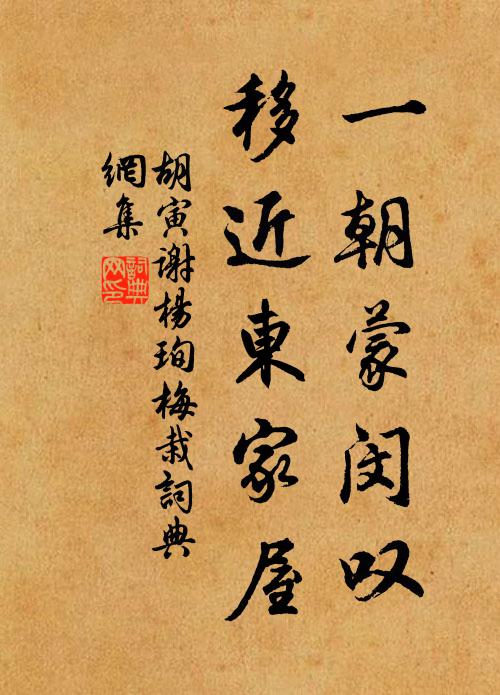 一朝蒙闵叹
移近東家屋
胡寅謝楊珣梅栽詞典
網集
詞典
网印